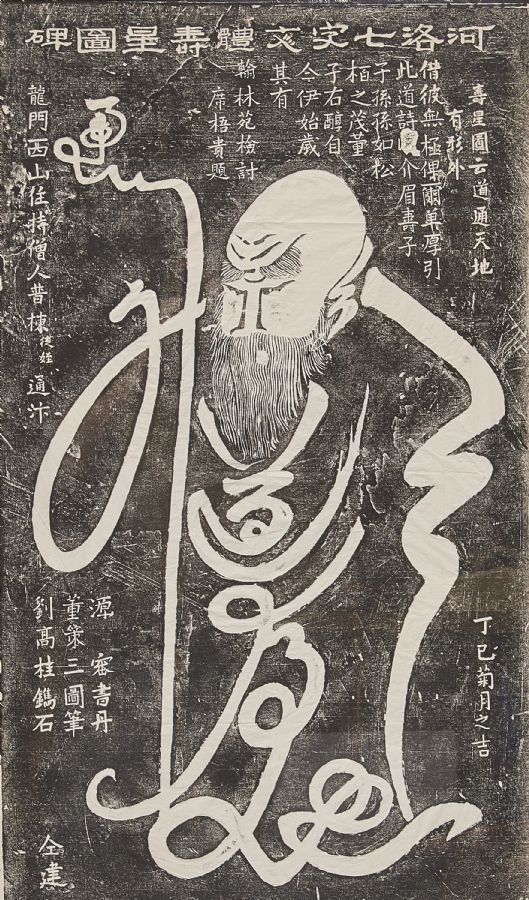 河洛七字交體壽星圖碑
壽星圖云道通天地
有形外
借彼無極俾爾單厚引
此道詩介眉壽子
子孫孫如松
柏之茂董
子右醇自
仝伊始歲
其有
翰林苑檢討
席梧貴題
丁巳菊月之吉
龍門西山住持僧人普棟徒姪通汴
源書丹
董策三圖筆
劉髙桂鐫石
仝建